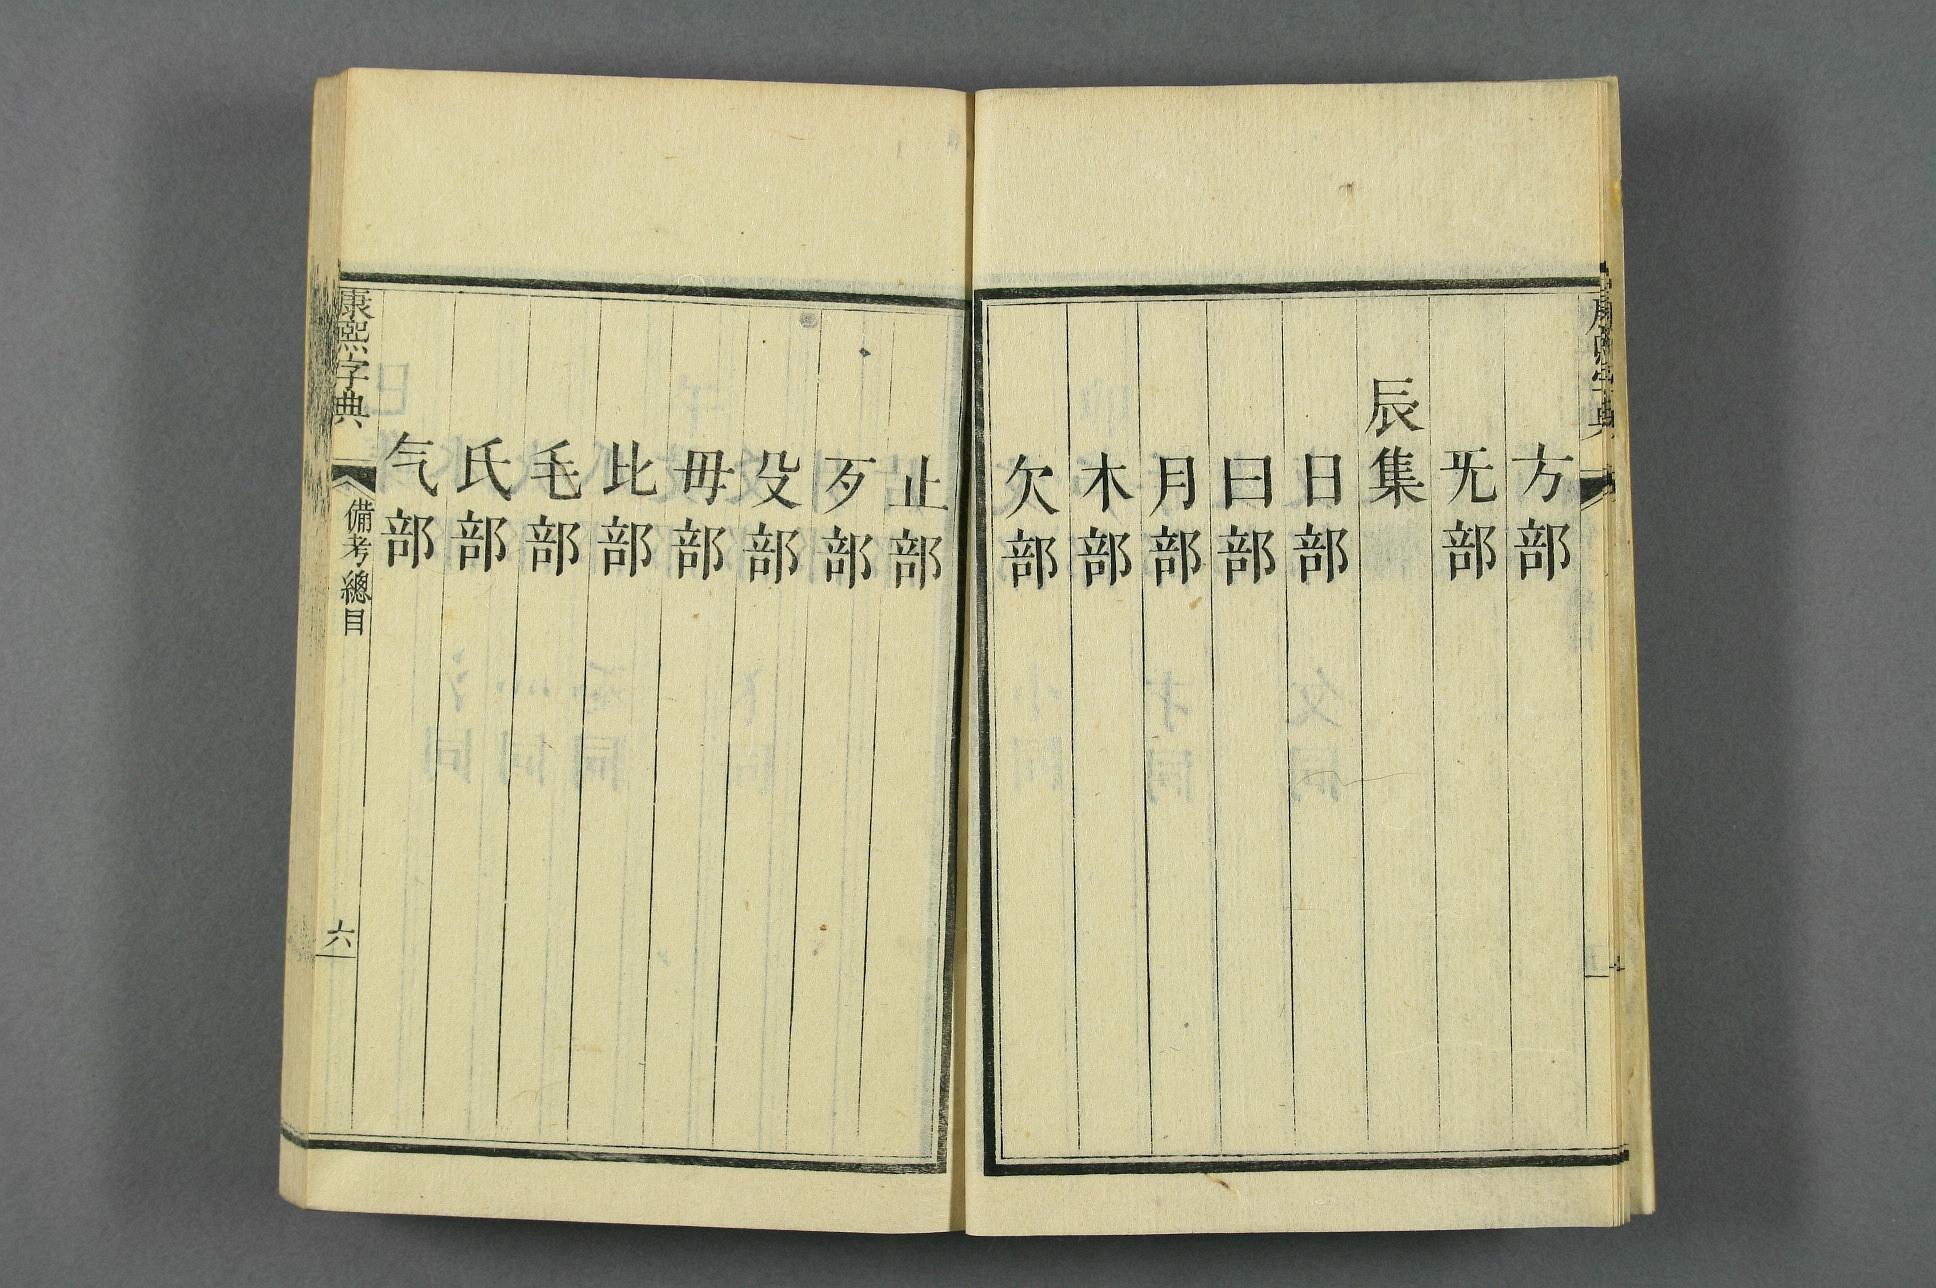 方部
旡部
辰集
日部
曰部
月部
木部
欠部
止部
歹部
殳部
毋部
比部
毛部
氏部
气部
康熙字典
備考總目
六